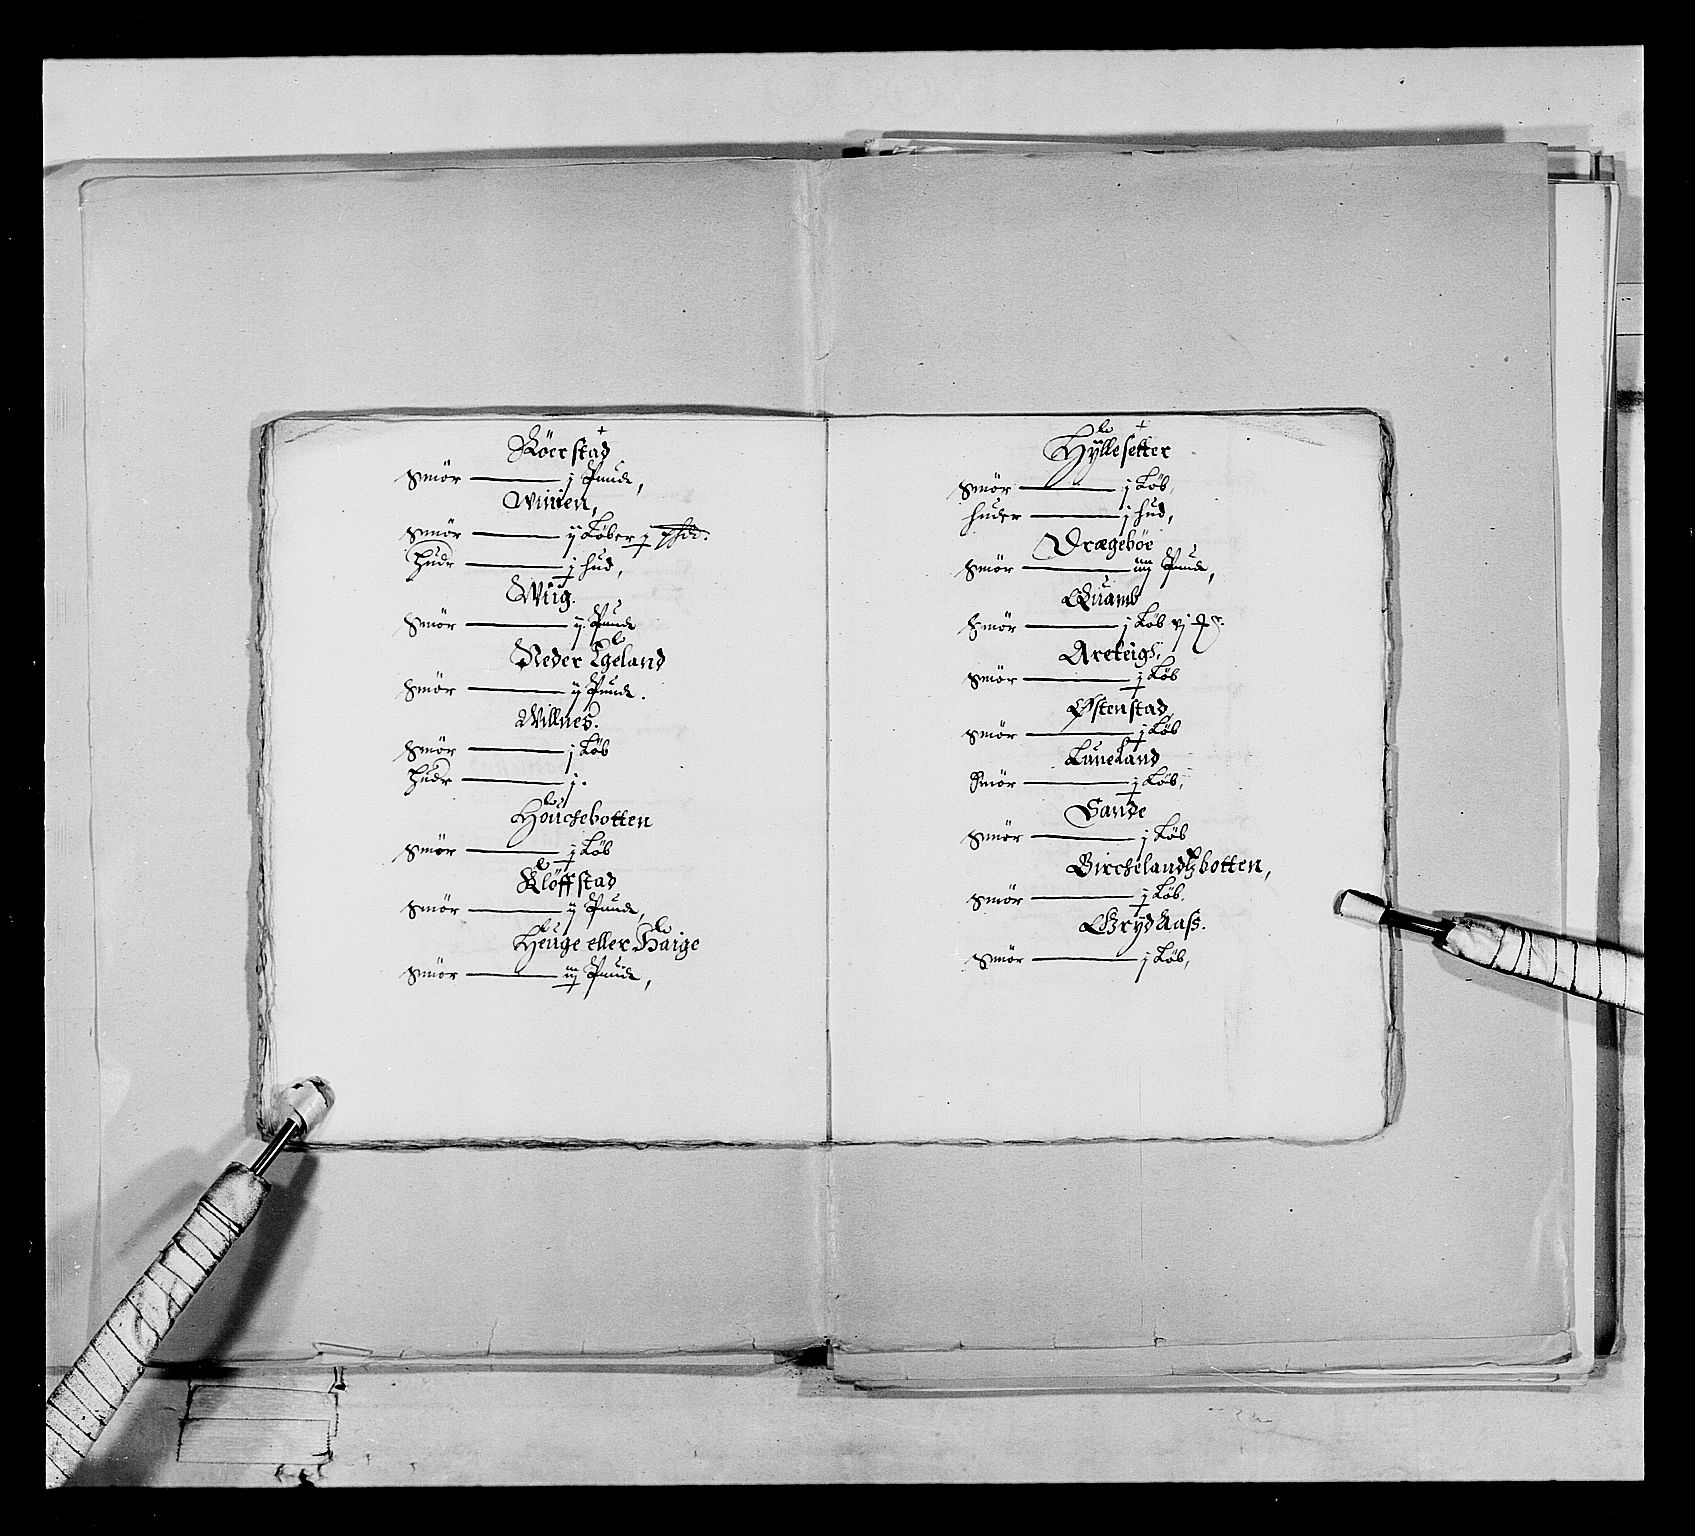 Röerstad
Smör j Punde,
Winien,
Smör ij Löber j
Hudr j hud,
Wiig.
Smör ij Punde
Neder Egeland
Smör ij Punde.
Willnes.
Smör j Löb
Hudr j.
Houchebotten
Smör j Löb
Klöffstad
Smör ij Punde,
Heuge eller Haige
Smör iij Punde,
Hÿllesetter
Smör j Löb,
huder j hud,
Drægeböe
Smör iiij Punde,
Quamb
Smör j Löb vj
Arekeig,
Smör j Löb
Østenstad
Smör j Löb
Laueland
Smör j Löb,
Sande
Smör j Löb
Birchelandtzbotten,
Smör j Löb.
Grÿdaass.
Smör j Löb,